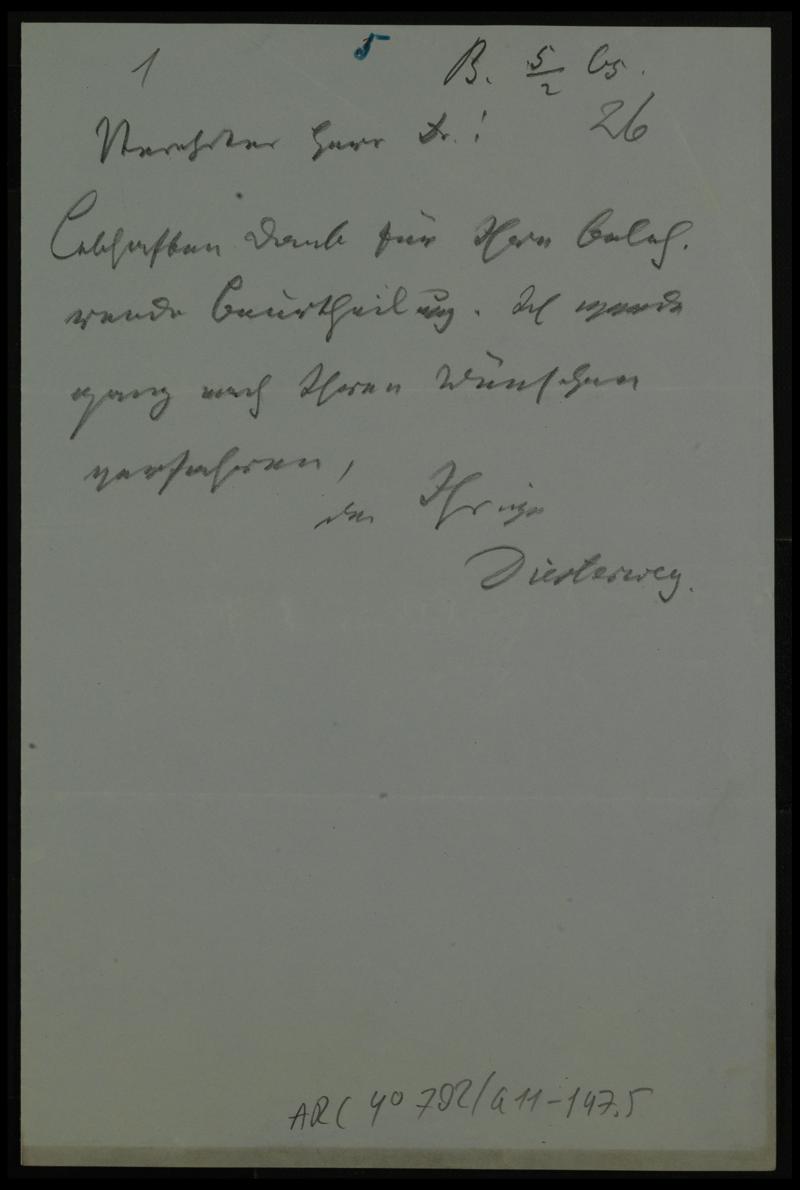 1 5 B. 5/2 65.
26
Verehrter Herr Dr.!
Lebhaften Dank für Ihre beleh-
rende Beurtheilung. Ich werde
ganz nach Ihren Wünschen
verfahren,
der Ihrige
Diesterweg.
ARC 4° 792/A11-147.5